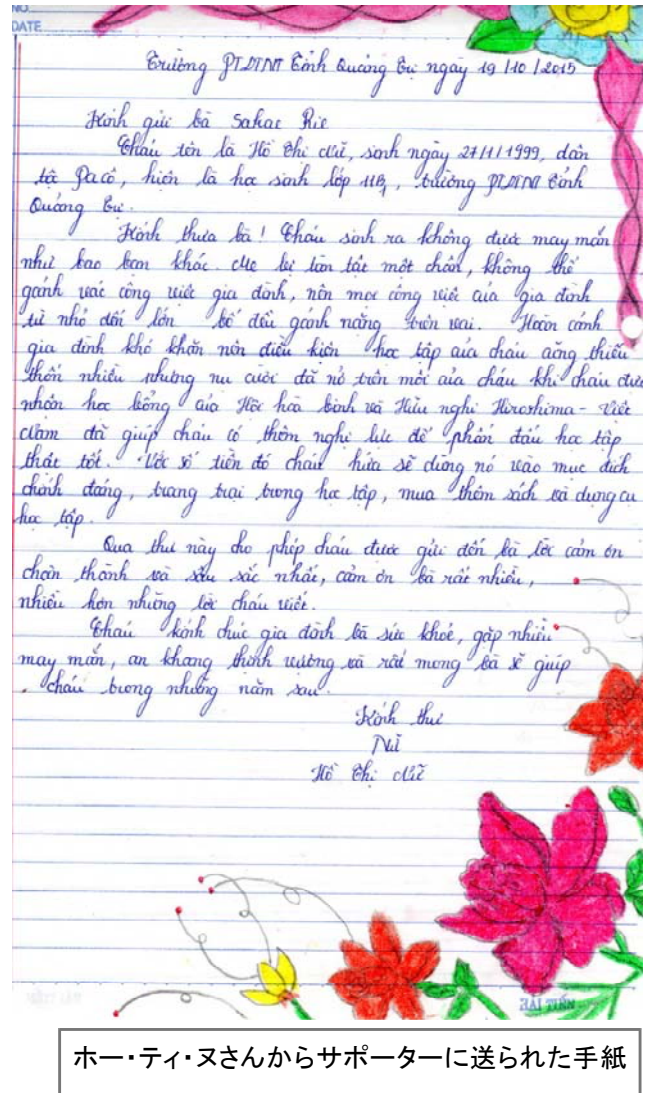 NO
DATE
Trường PTDTNT Tỉnh Quảng Trị ngày 19/10/2015
Kính gửi bà Sakae Rie
Cháu tên là Hồ Thị Nữ, sinh ngày 27/1/1999, dân
tộc Pacô, hiện là học sinh lớp 11B1, trường PTDTNT Tỉnh
Quảng Trị.
Kính thưa bà! Cháu sinh ra không được may mắn
như bao bạn khác. Mẹ bị tàn tật một chân, không thể
gánh vác công việc gia đình, nên mọi công việc của gia đình
từ nhỏ đến lớn bố đều gánh nặng trên vai. Hoàn cảnh
gia đình khó khăn nên điều kiện học tập của cháu cũng thiếu
thốn nhiều nhưng nụ cười đã nở trên môi của cháu khi cháu được
nhận học bổng của Hội hòa bình và Hữu nghị Hiroshima - Việt
Nam đã giúp cháu có thêm nghị lực để phấn đấu học tập
thật tốt. Với số tiền đó cháu hứa sẽ dùng nó vào mục đích
chính đáng, trang trải trong học tập, mua thêm sách và dụng cụ
học tập.
Qua thư này cho phép cháu được gửi đến bà lời cảm ơn
chân thành và sâu sắc nhất, cảm ơn bà rất nhiều,
nhiều hơn những lời cháu viết.
Cháu kính chúc gia đình bà sức khỏe, gặp nhiều
may mắn, an khang thịnh vượng và rất mong bà sẽ giúp
cháu trong những năm sau.
Kính thư
Nữ
Hồ Thị Nữ
HẢI TIẾN
ホー・ティ・ヌさんからサポーターに送られた手紙